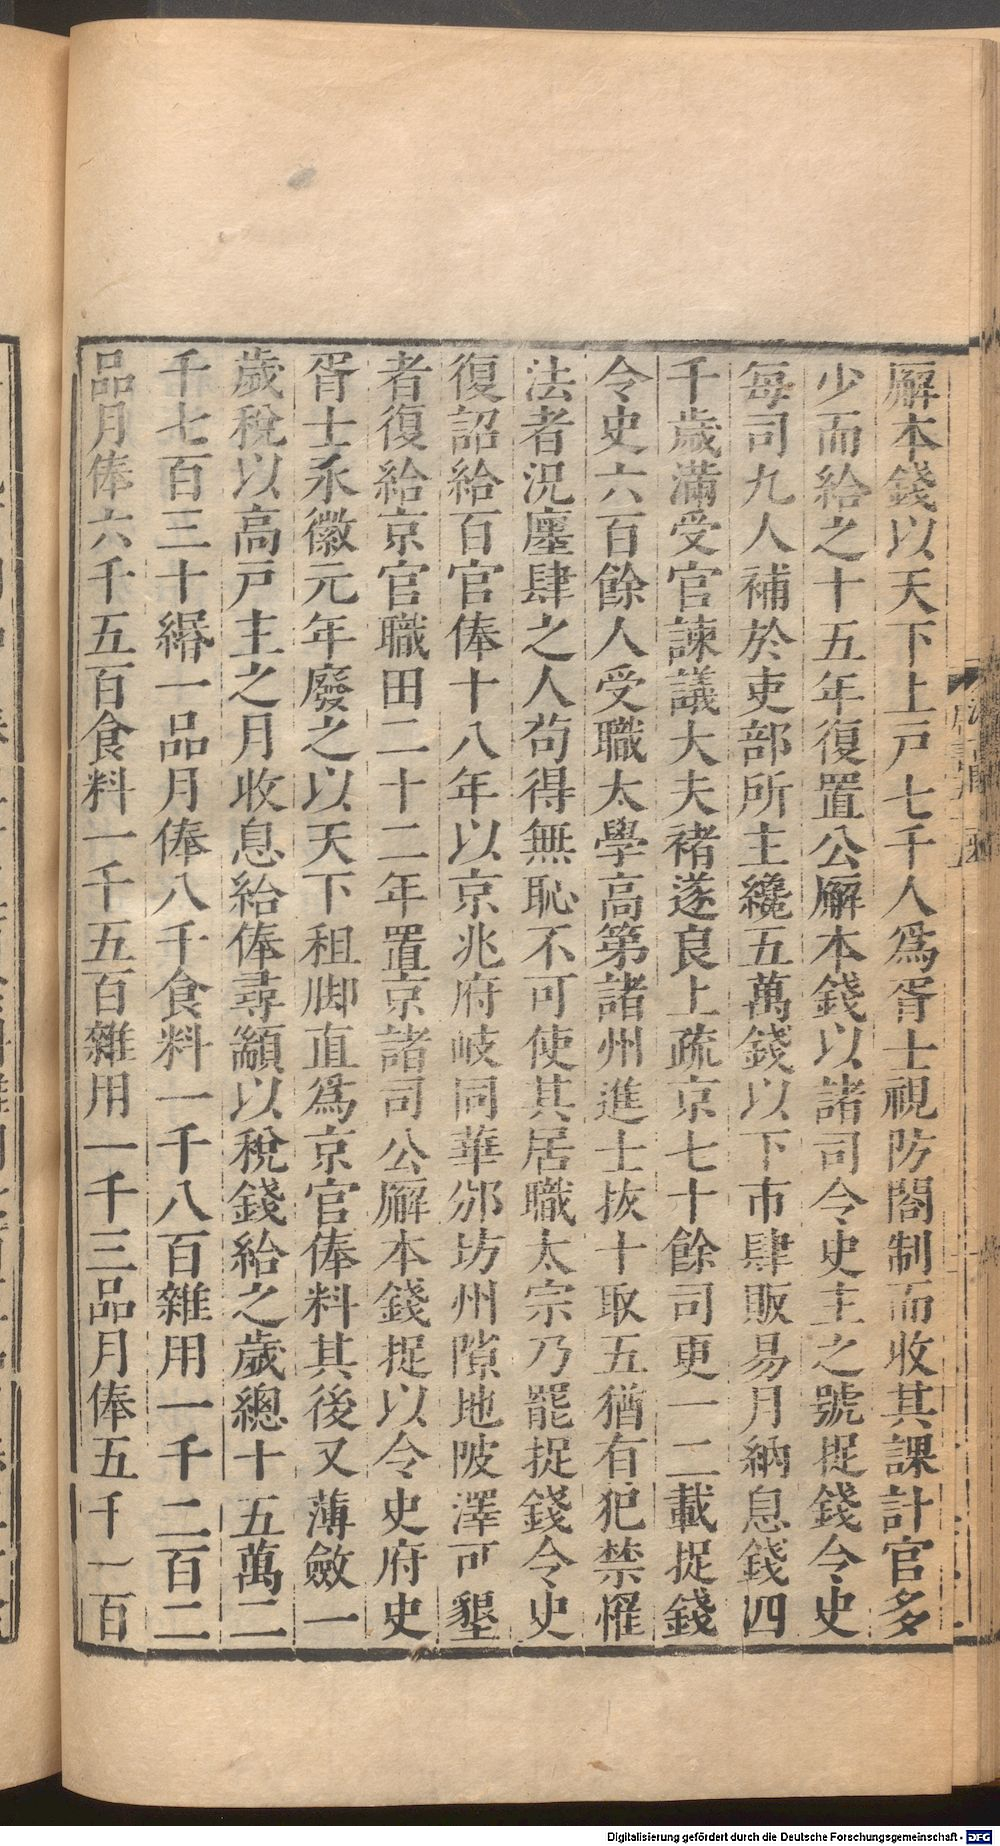 廨本錢以天下上戸七千人爲胥士視防閤制而收其課計官多
少而給之十五年復置公廨本錢以諸司令史主之號捉錢令史
每司九人補於吏部所主纔五萬錢以下市肆販易月納息錢四
千歲滿受官諫議大夫褚遂良上疏京七十餘司更一二載捉錢
令史六百餘人受職太學高第諸州進士拔十取五猶有犯禁懼
法者況廛肆之人苟得無恥不可使其居職太宗乃罷捉錢令史
復詔給百官俸十八年以京兆府岐同華邠坊州隙地陂澤可墾
者復給京官職田二十二年置京諸司公廨本錢捉以令史府史
胥士永徽元年廢之以天下租脚直爲京官俸料其後又薄斂一
歲稅以高戸主之月收息給俸尋顓以稅錢給之歲總十五萬二
千七百三十緡一品月俸八千食料一千八百雜用一千二百二
品月俸六千五百食料一千五百雜用一千三品月俸五千一百
Digitalisierung gefördert durch die Deutsche Forschungsgemeinschaft - DFG